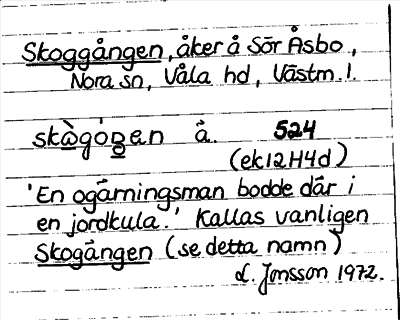 Skoggången, åker å Sör Åsbo,
Nora sn, Våla hd, Västm. l.
skàgóŋen å. 524
(ek 12H4d)
'En ogärningsman bodde där i
en jordkula.' Kallas vanligen
Skogången (se detta namn)
L. Jonsson 1972.